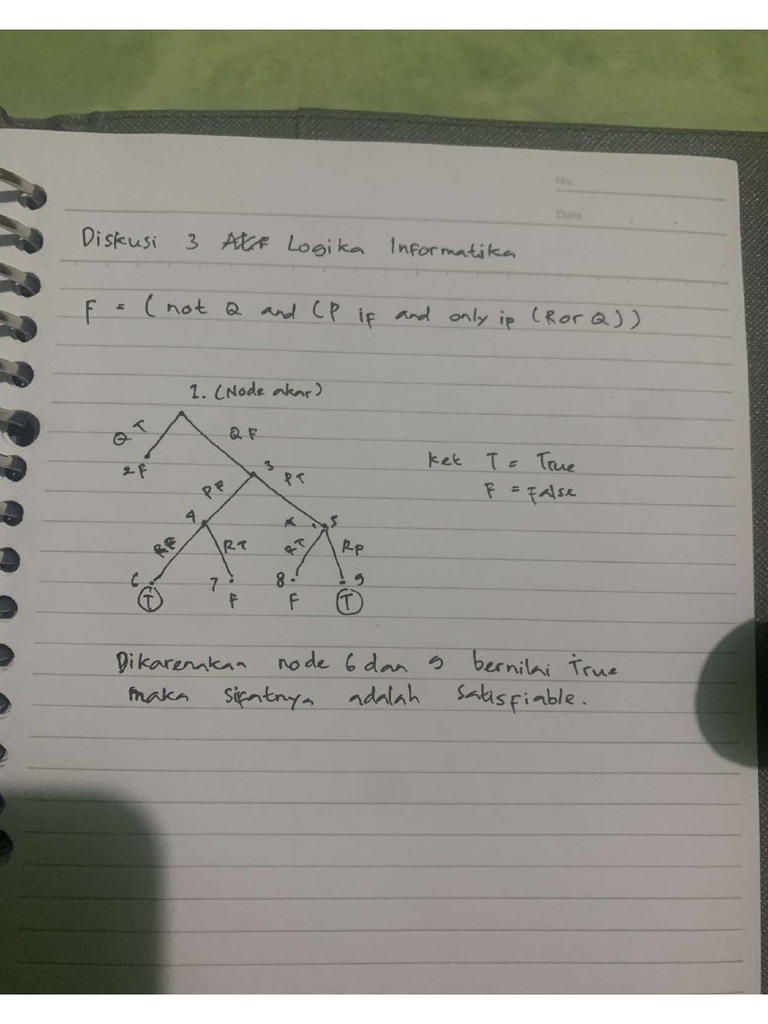 No.
Date
Diskusi 3 Logika Informatika
F = (not Q and (P if and only if (R or Q))
1. (Node akar)
Q T
Q F
2 F
3
P F
P T
Ket T = True
F = False
4
5
R F
R T
R T
R F
6
7
8
9
T
F
F
T
Dikarenakan node 6 dan 9 bernilai True
maka sifatnya adalah Satisfiable.